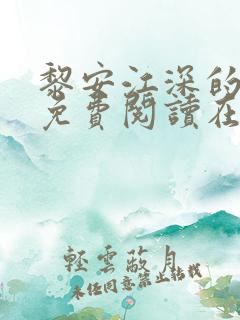 黎安江深的
免費閱讀在
輕雲蔽月
未經同意禁止轉載